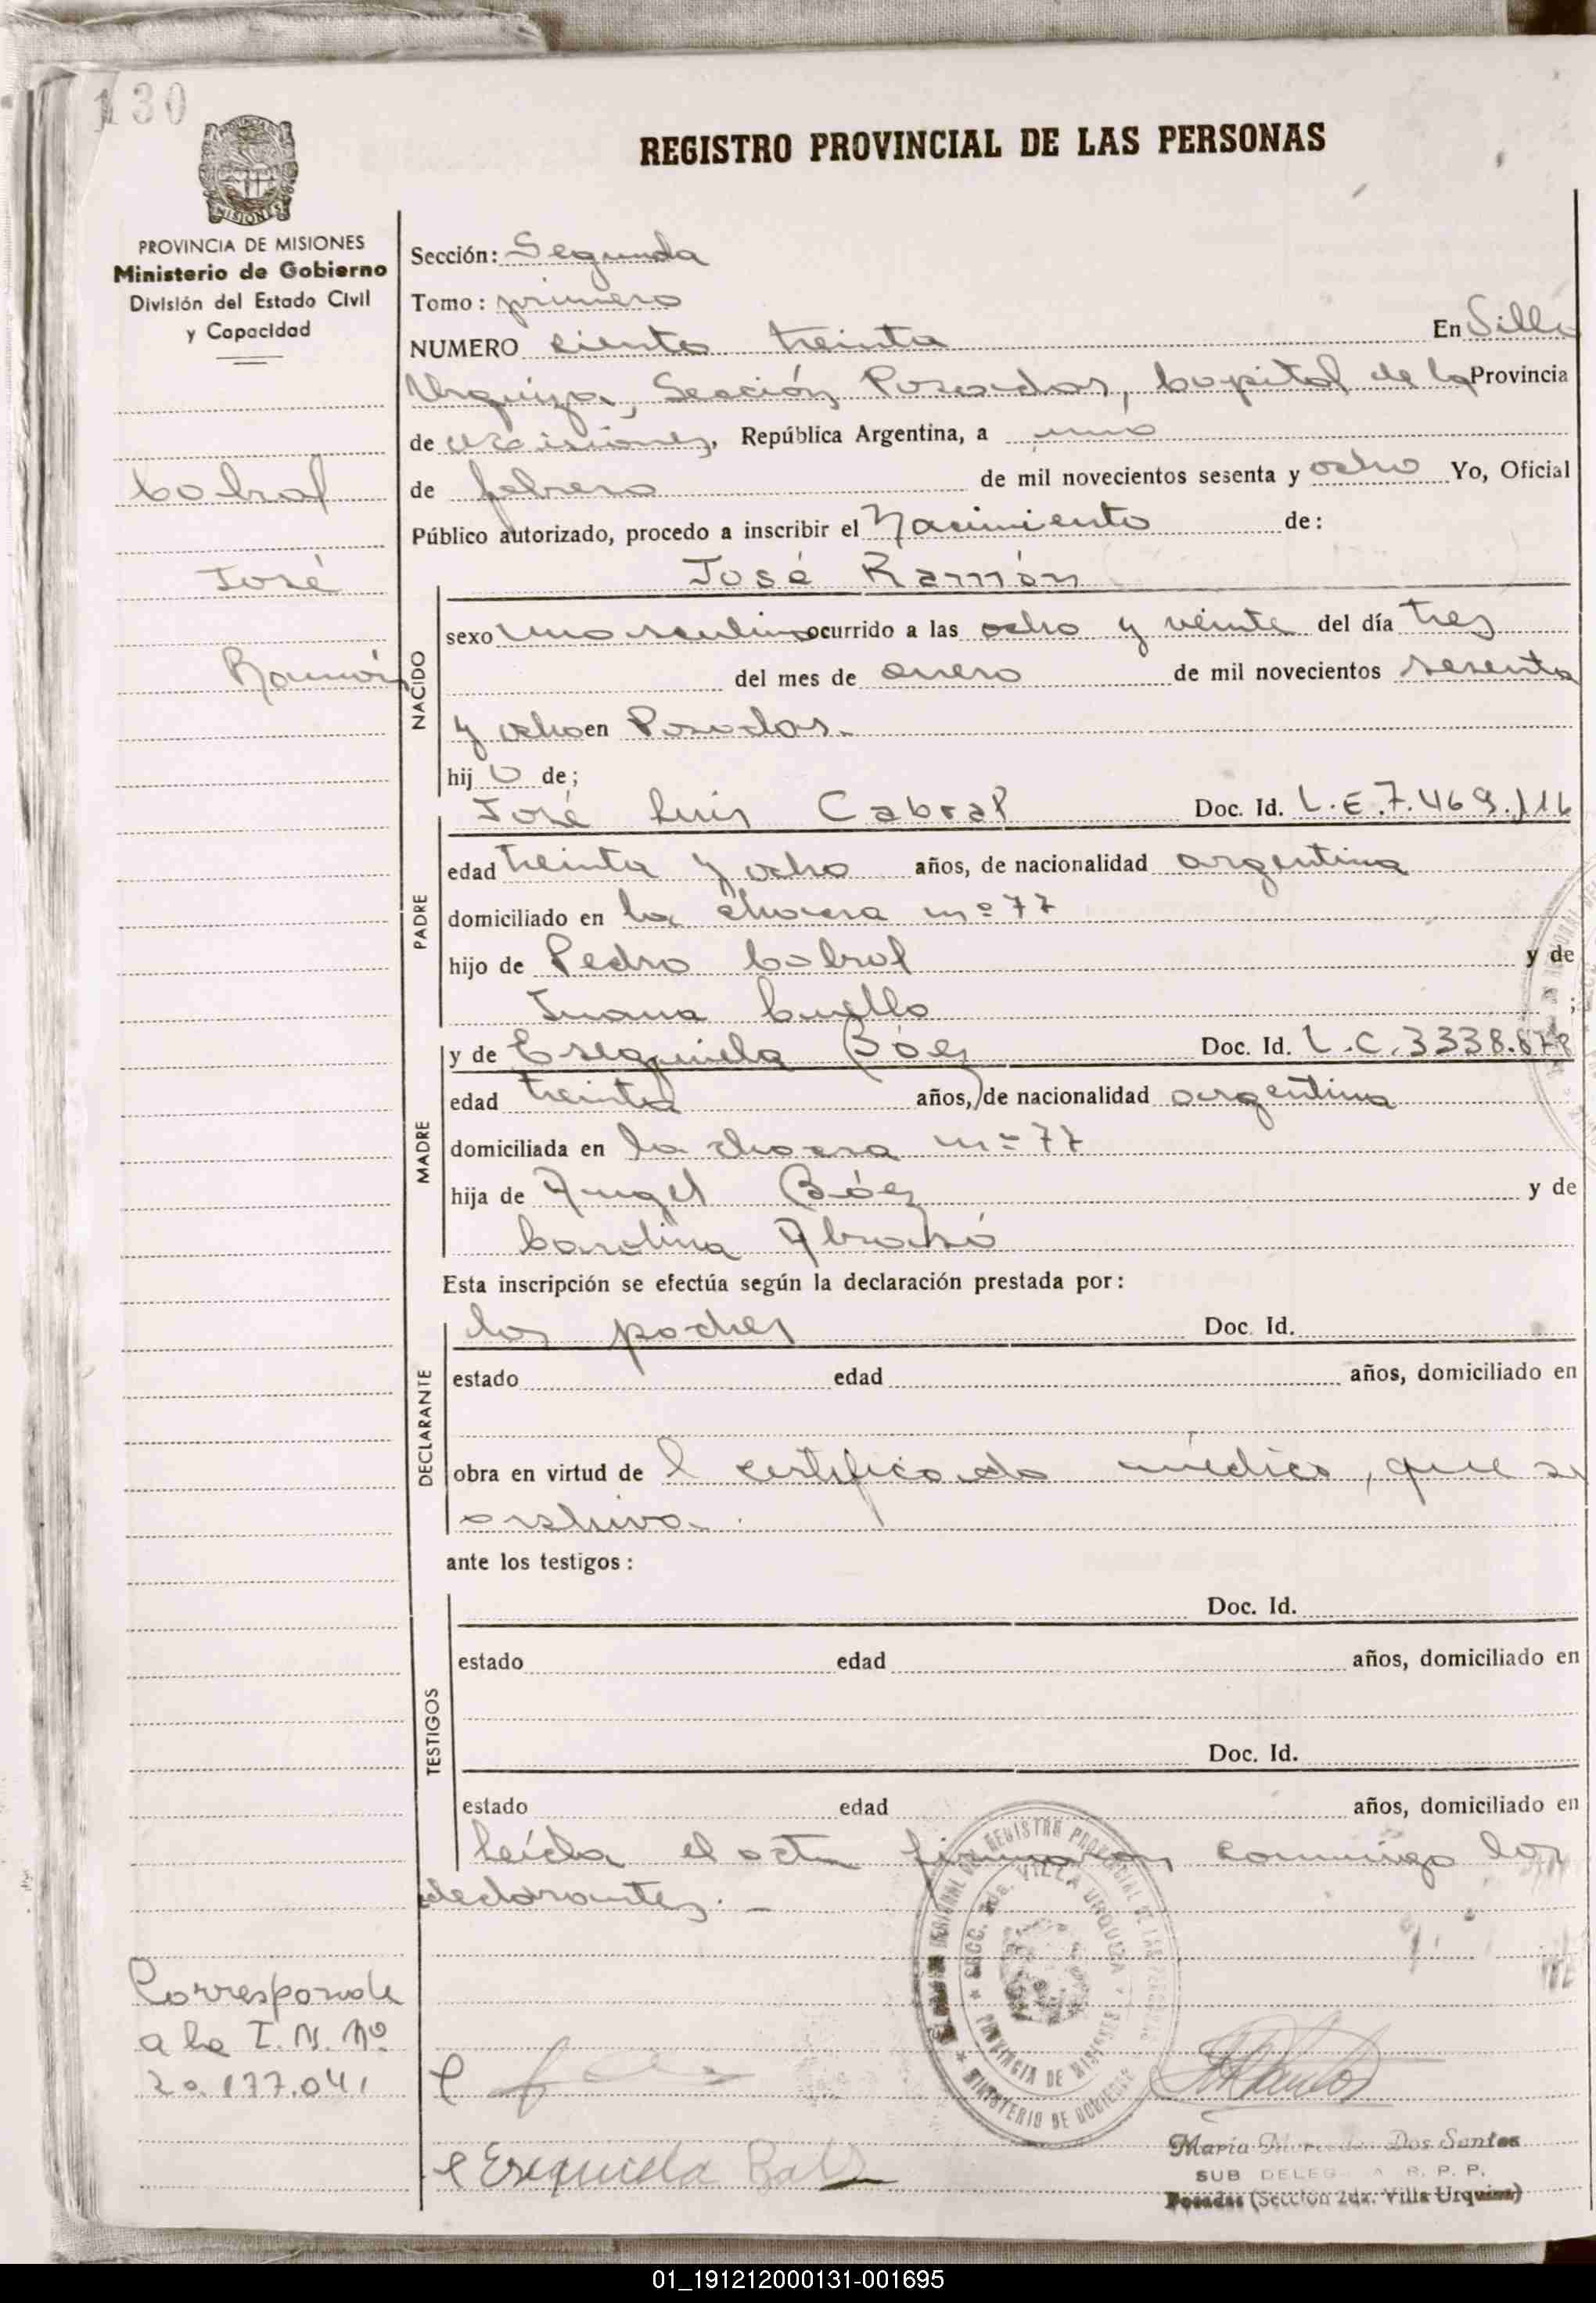 130
REGISTRO PROVINCIAL DE LAS PERSONAS
MISIONES
PROVINCIA DE MISIONES
Ministerio de Gobierno
División del Estado Civil
y Capacidad
Sección: Segunda
Tomo: primero
NUMERO ciento treinta En Villa
Urquiza, Sección Posadas, capital de la Provincia
de Misiones, República Argentina, a uno
de febrero de mil novecientos sesenta y ocho Yo, Oficial
Público autorizado, procedo a inscribir el Nacimiento de:
Cabral
José
Ramón
José Ramón
NACIDO
sexo masculino ocurrido a las ocho y veinte del día tres
del mes de enero de mil novecientos sesenta
y ocho en Posadas.
hijo de;
PADRE
José Luis Cabral Doc. Id. L.E.7.469.116
edad treinta y ocho años, de nacionalidad argentina
domiciliado en la chacra nº 77
hijo de Pedro Cabral y de
Juana Cuello ;
MADRE
y de Esequiela Báez Doc. Id. L.C.3338.678
edad treinta años, de nacionalidad argentina
domiciliada en la chacra nº 77
hija de Angel Báez y de
Carolina
Esta inscripción se efectúa según la declaración prestada por:
DECLARANTE
los padres Doc. Id.
estado edad años, domiciliado en
obra en virtud de l certificado médico, que se
archiva.
ante los testigos:
TESTIGOS
Doc. Id.
estado edad años, domiciliado en
Doc. Id.
estado edad años, domiciliado en
Leída el acta firmaron conmigo los
declarantes.
REGISTRO PROVINCIAL DE LAS PERSONAS
SECC. 2da. VILLA URQUIZA
PROVINCIA DE MISIONES
MINISTERIO DE GOBIERNO
Corresponde
a la I.N. Nº
20.177.041
Esequiela
María Dos Santos
SUB R. P. P.
Posadas (Sección 2da. Villa Urquiza)
01_191212000131-001695